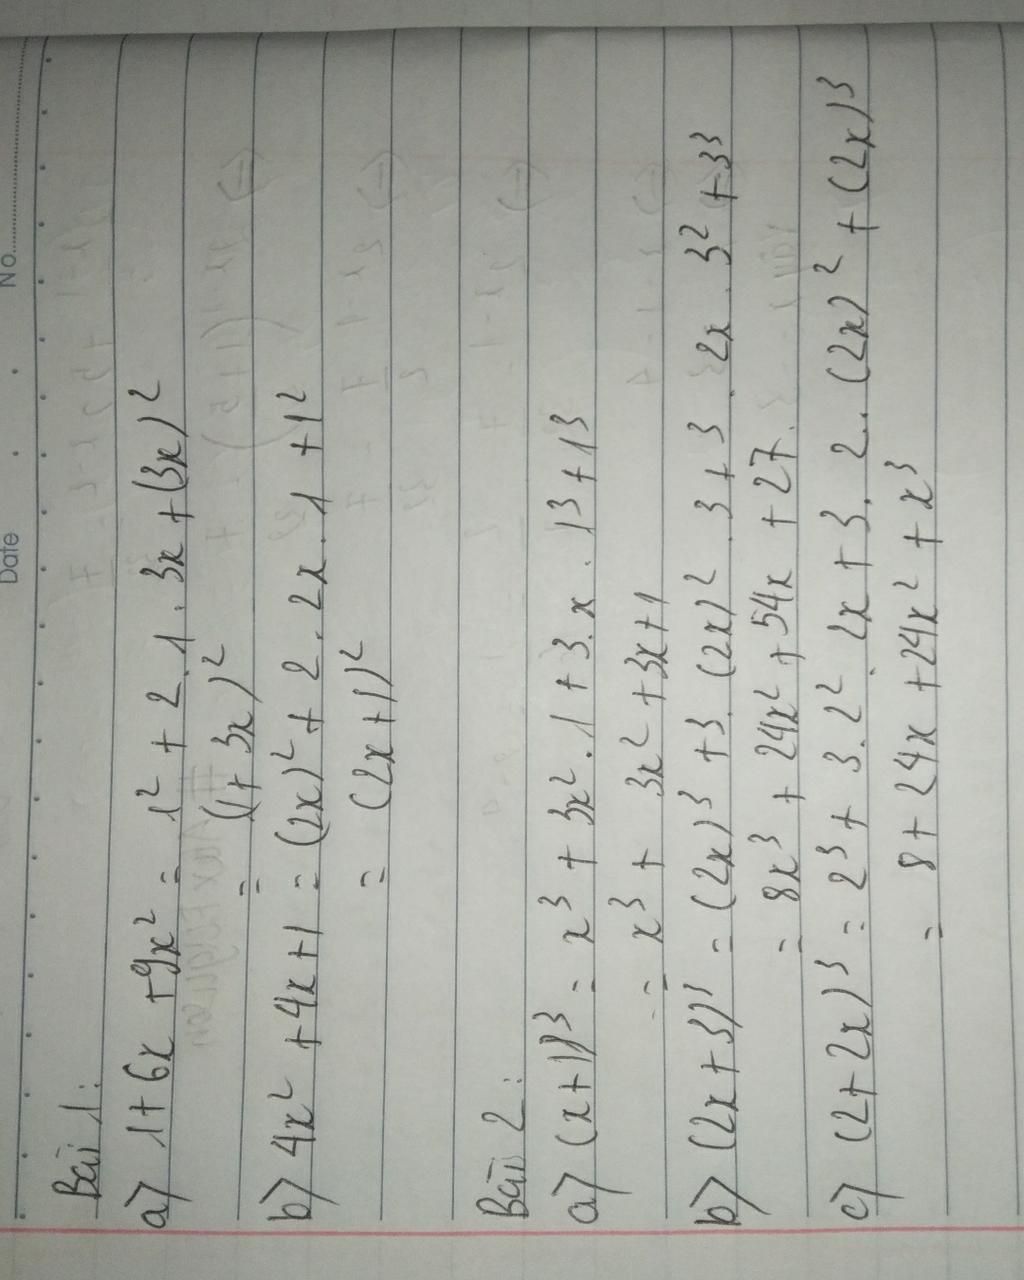 Date No.
Bài 1:
a) 1 + 6x + 9x² = 1² + 2.1.3x + (3x)²
= (1 + 3x)²
b) 4x² + 4x + 1 = (2x)² + 2.2x.1 + 1²
= (2x + 1)²
Bài 2:
a) (x+1)³ = x³ + 3x².1 + 3.x.1³ + 1³
= x³ + 3x² + 3x + 1
b) (2x + 3)³ = (2x)³ + 3.(2x)².3 + 3.2x.3² + 3³
= 8x³ + 24x² + 54x + 27.
c) (2 + 2x)³ = 2³ + 3.2².2x + 3.2.(2x)² + (2x)³
= 8 + 24x + 24x² + x³